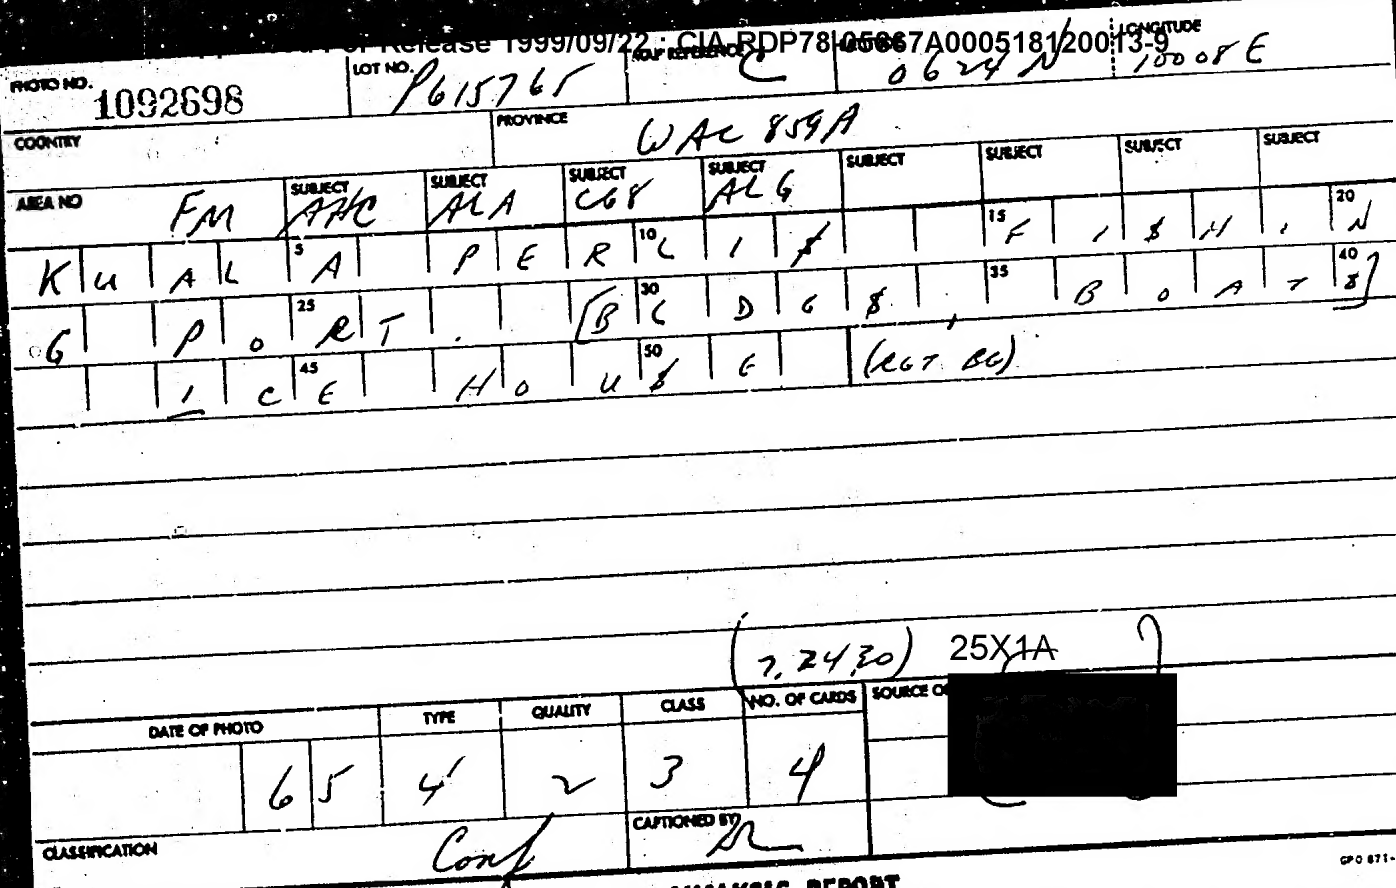 For Release 1999/09/22 : CIA-RDP78-05867A000518120013-9
PHOTO NO. 1092698 LOT NO. P615765 MAP REFERENCE C 0624 N LONGITUDE 10008 E
COUNTRY PROVINCE WAC 859A
AREA NO FM SUBJECT AHC SUBJECT ALA SUBJECT C68 SUBJECT ALG SUBJECT SUBJECT SUBJECT SUBJECT
KUAL 5 A PER 10 LIS 15 FISHI 20 N
G PO 25 RT. [B 30 LDGS, 35 BOAT 40 S]
IC 45 E HOU 50 SE (RGT BG)
(7,2430) 25X1A
DATE OF PHOTO TYPE QUALITY CLASS NO. OF CARDS SOURCE
65 4 2 3 4
CLASSIFICATION Conf CAPTIONED BY
GPO 871-
REPORT